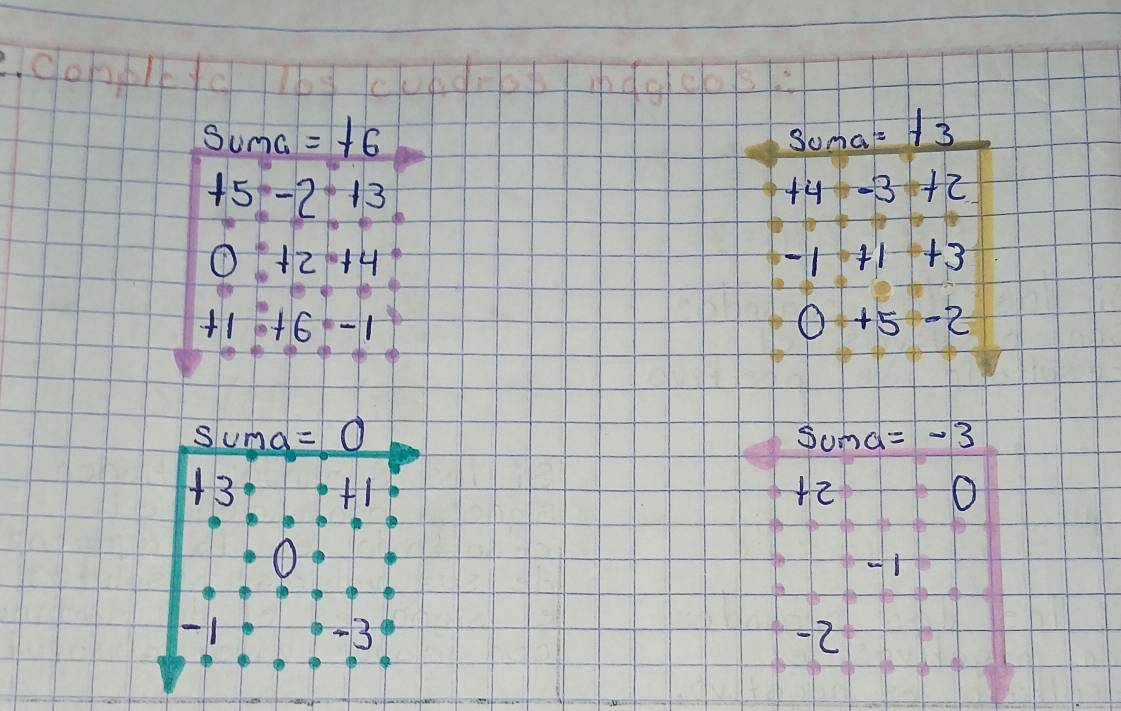 2. Completa los cuadros mágicos:
Suma = +6
+5 -2 +3
0 +2 +4
+1 +6 -1
Suma = +3
+4 -3 +2
-1 +1 +3
0 +5 -2
Suma = 0
+3 +1
0
-1 -3
Suma = -3
+2 0
-1
-2